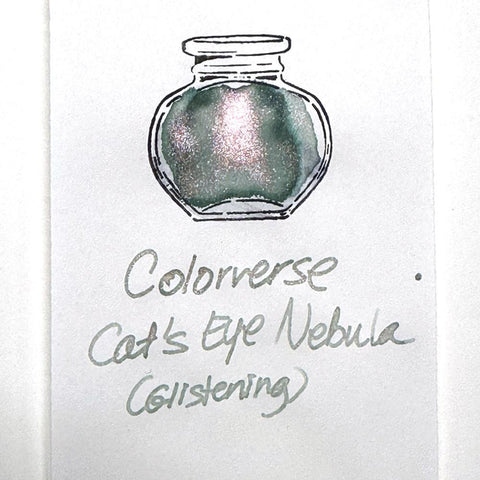 Colorverse
Cat's Eye Nebula
(Glistening)